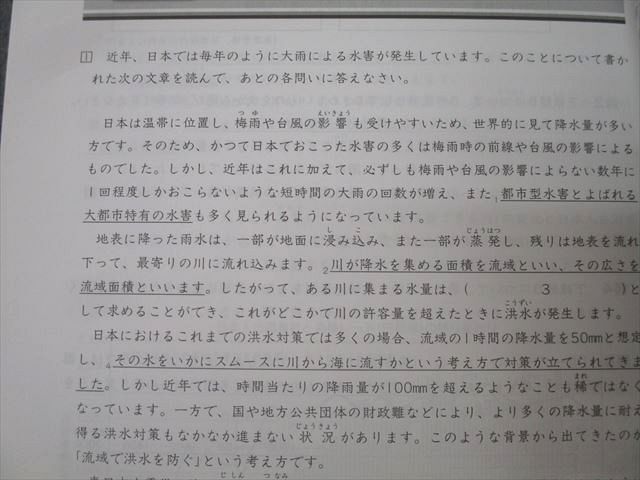 1 近年、日本では毎年のように大雨による水害が発生しています。このことについて書か
れた次の文章を読んで、あとの各問いに答えなさい。
日本は温帯に位置し、梅雨や台風の影響も受けやすいため、世界的に見て降水量が多い
方です。そのため、かつて日本でおこった水害の多くは梅雨時の前線や台風の影響による
ものでした。しかし、近年はこれに加えて、必ずしも梅雨や台風の影響によらない数年に
1回程度しかおこらないような短時間の大雨の回数が増え、また1都市型水害とよばれる
大都市特有の水害も多く見られるようになっています。
地表に降った雨水は、一部が地面に浸み込み、また一部が蒸発し、残りは地表を流れ
下って、最寄りの川に流れ込みます。2川が降水を集める面積を流域といい、その広さを
流域面積といいます。したがって、ある川に集まる水量は、( 3 )と
して求めることができ、これがどこかで川の許容量を超えたときに洪水が発生します。
日本におけるこれまでの洪水対策では多くの場合、流域の1時間の降水量を50mmと想定
し、4その水をいかにスムースに川から海に流すかという考え方で対策が立てられてきま
した。しかし近年では、時間当たりの降雨量が100mmを超えるようなことも稀ではなく
なっています。一方で、国や地方公共団体の財政難などにより、より多くの降水量に耐え
得る洪水対策もなかなか進まない状況があります。このような背景から出てきたのが
「流域で洪水を防ぐ」という考え方です。